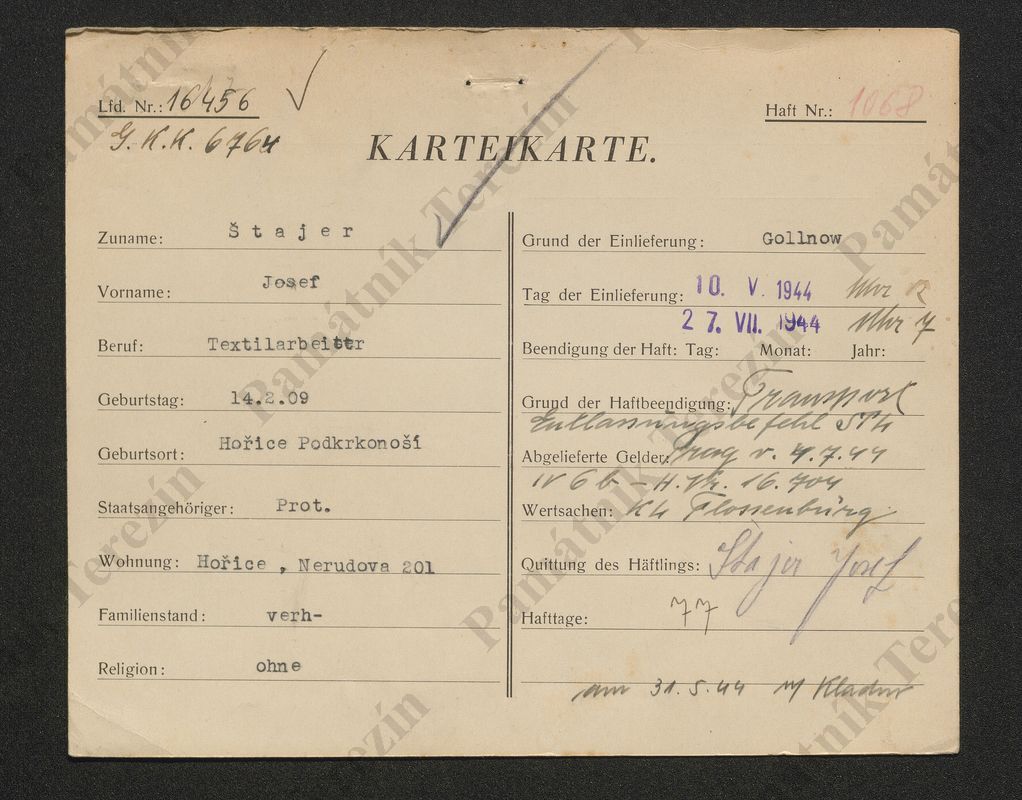 Lfd. Nr.: 16456
G. K. K. 6764
Haft Nr.: 1068
KARTEIKARTE.
Zuname: Štajer
Vorname: Josef
Beruf: Textilarbeiter
Geburtstag: 14.2.09
Geburtsort: Hořice Podkrkonoší
Staatsangehöriger: Prot.
Wohnung: Hořice, Nerudova 201
Familienstand: verh-
Religion: ohne
Grund der Einlieferung: Gollnow
Tag der Einlieferung: 10. V. 1944 Uhr
27. VII. 1944 Uhr 7
Beendigung der Haft: Tag: Monat: Jahr:
Grund der Haftbeendigung: Transport
Entlassungsbefehl
Abgelieferte Gelder: Prag v. 4.7.44
IV 6 b - 16.704
Wertsachen: KL Flossenbürg
Quittung des Häftlings: Štajer Josef
Hafttage: 77
am 31.5.44 Kladno
Památník Terezín